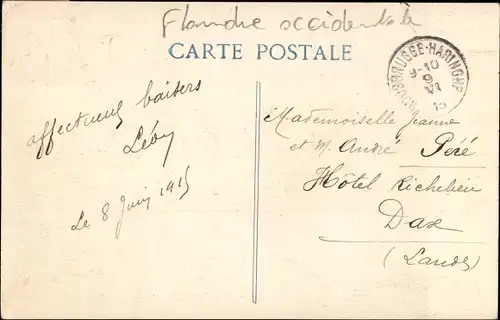 Flandre occidentale
CARTE POSTALE
ROUSBRUGGE-HARINGHE
9-10
9
VI
15
affectueux baisers
Léby
Le 8 Juin 1915
Mademoiselle Jeanne
et M. André Péré
Hôtel Richelieu
Dax
(Landes)